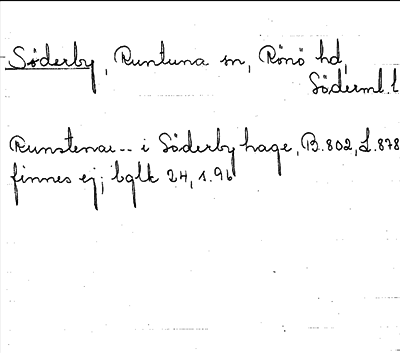 Söderby, Runtuna sn, Rönö hd,
Söderml. l
Runstenar -- i Söderby hage, B.802, L.878
finnes ej; bglk 24, s.96